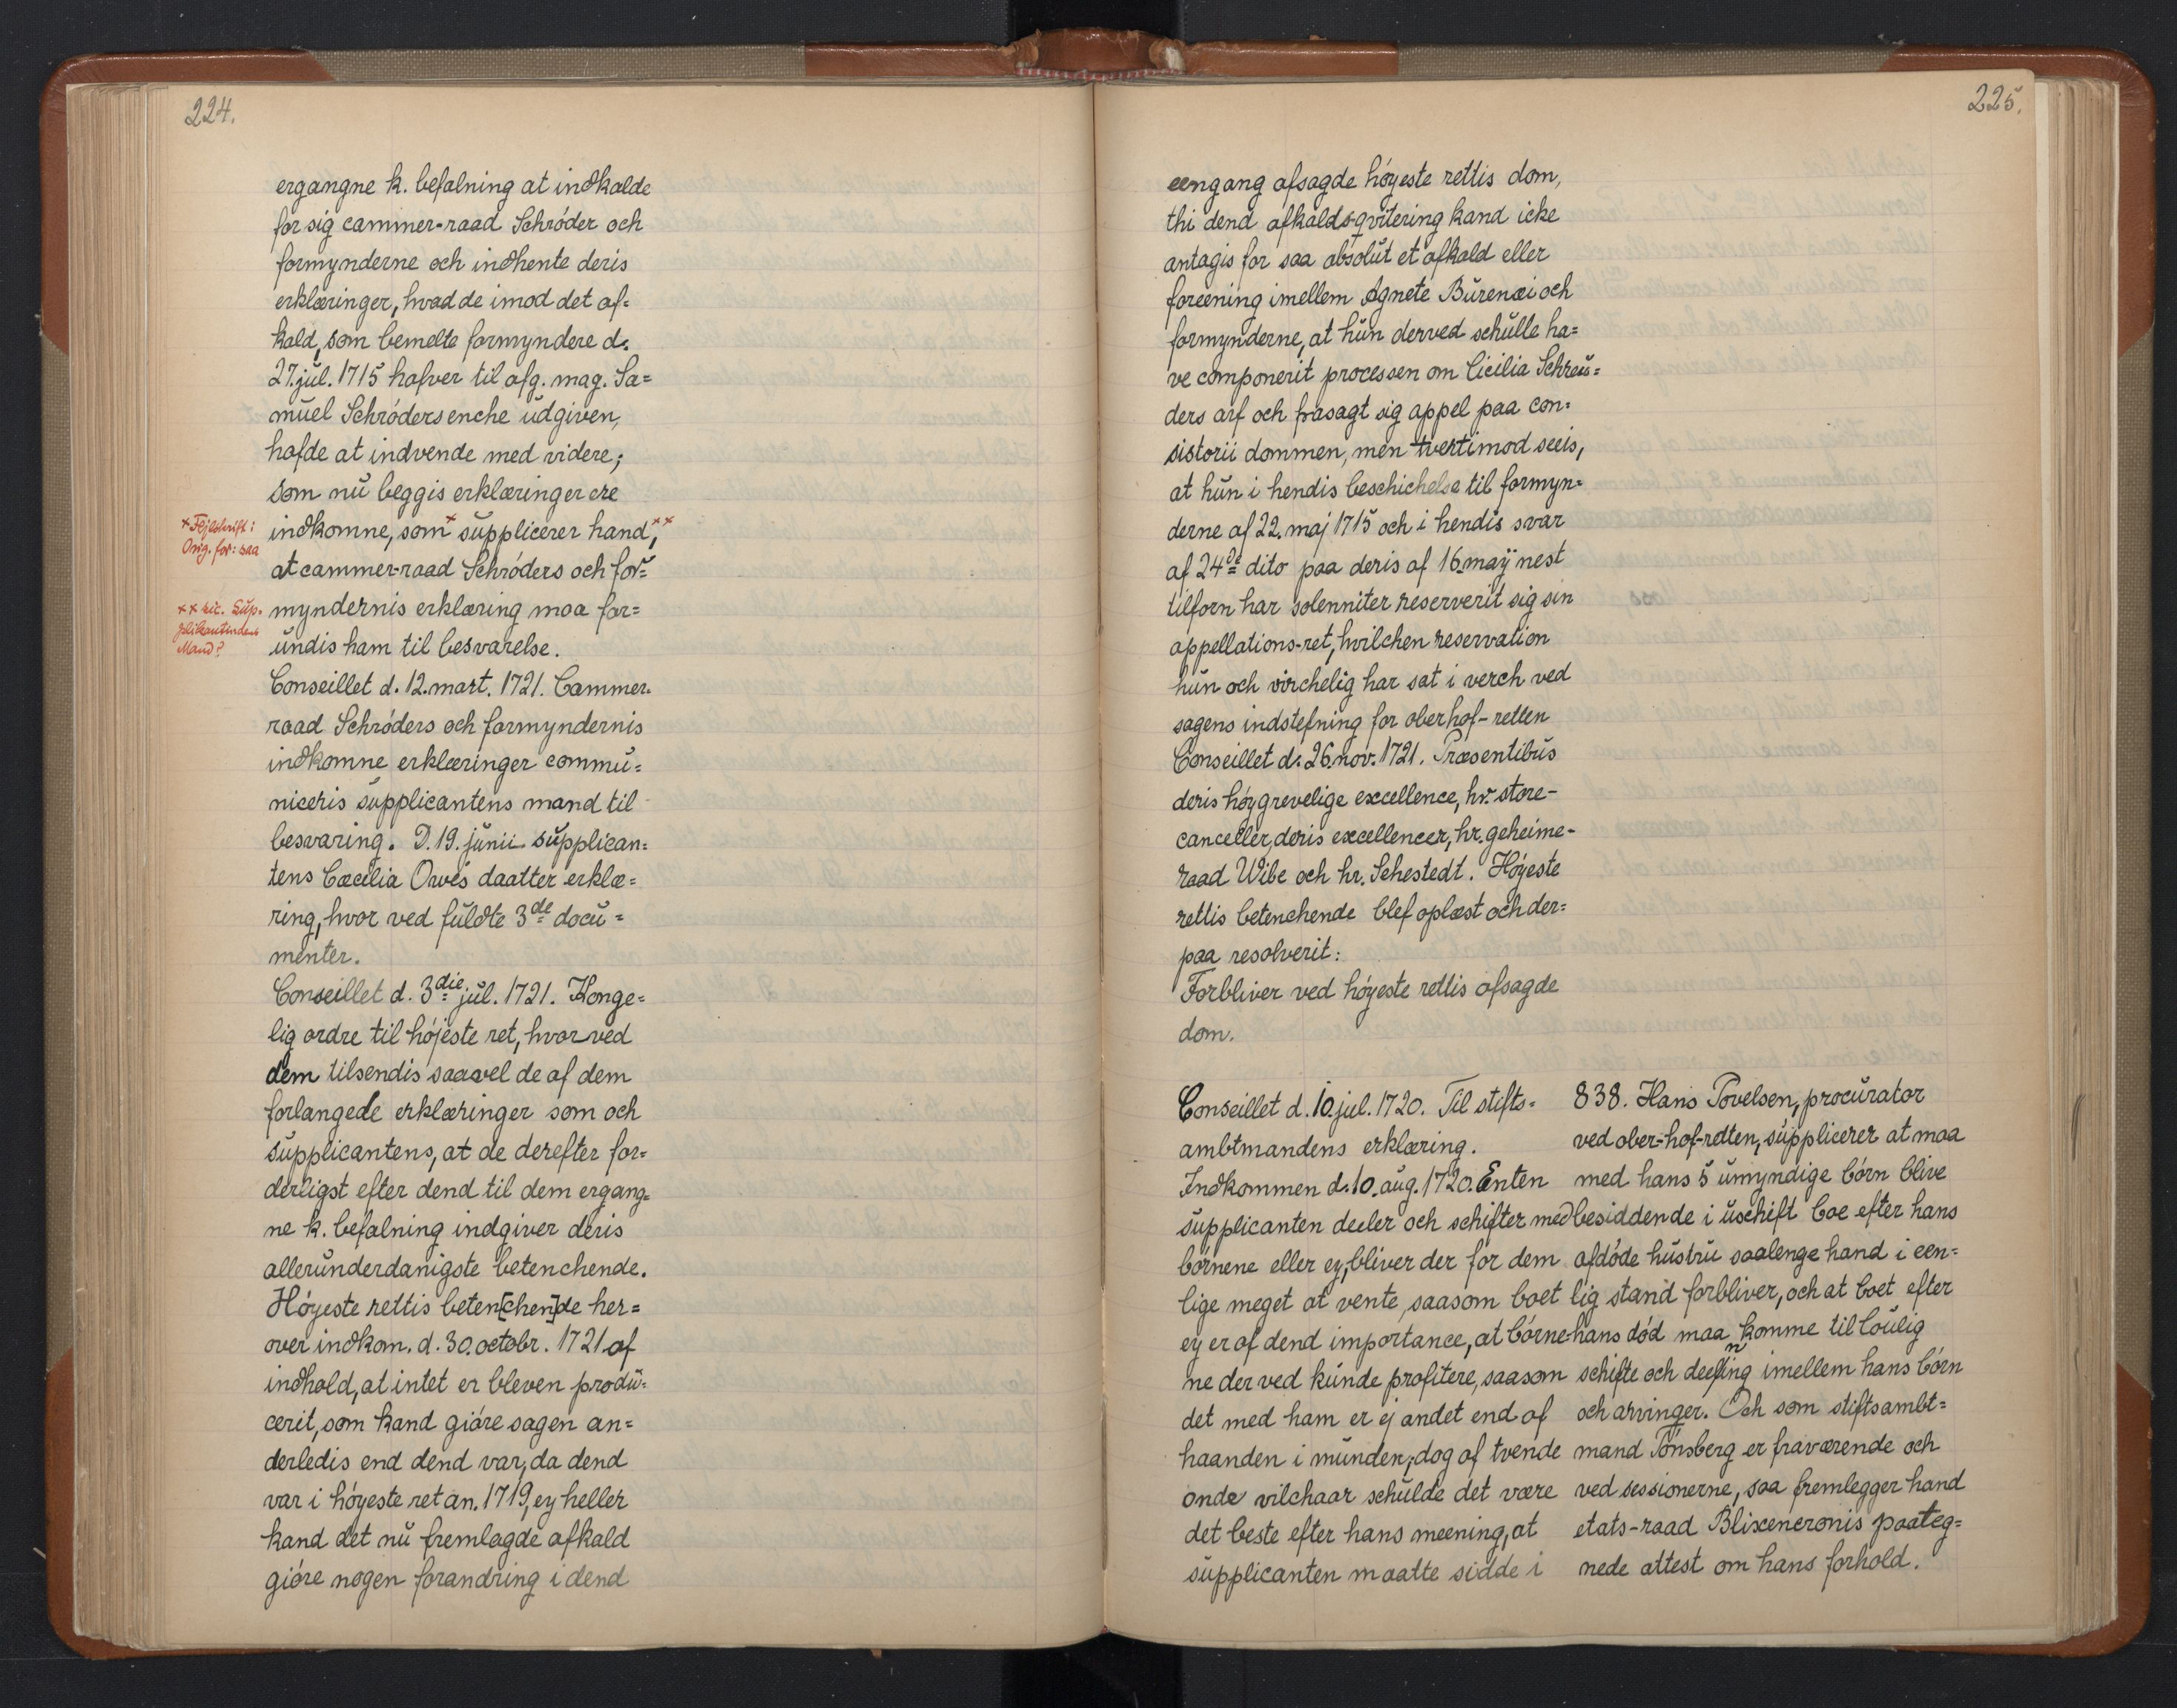 224.
ergangne k. befalning at indkalde
for sig cammer-raad Schróder och
formynderne och indhente deris
erklæringer, hvad de imod det af=
kald, som bemelte formyndere d.
27. jul. 1715 hafver til afg. mag. Sa=
muel Schróders enche udgiven,
hafde at indvende med videre;
som nu beggis erklæringer ere
indkomne, som × supplicerer hand, ××
at cammer-raad Schróders och for=
myndernis erklæring maa for=
undis ham til besvarelse.
× Fejlskrift i
Orig. for: saa
×× sic. Sup-
plikantindens
Mand?
Conseillet d. 12. mart. 1721. Cammer-
raad Schróders och formyndernis
indkomne erklæringer commu=
niceris supplicantens mand til
besvaring. D. 19. junii supplican=
tens Cæcilia Oves daatter erklæ=
ring, hvor ved fuldte 3de docu=
menter.
Conseillet d. 3die jul. 1721. Konge=
lig ordre til höjeste ret, hvor ved
dem tilsendis saavel de af dem
forlangede erklæringer som och
supplicantens, at de derefter for=
derligst efter dend til dem ergang=
ne k. befalning indgiver deris
allerunderdanigste betenchende.
Hóyeste rettis beten[chen]de her=
over indkom. d. 30. octobr. 1721 af
indhold, at intet er bleven produ=
cerit, som kand gióre sagen an=
derledis end dend var, da dend
var i hóyeste ret an. 1719, ey heller
kand det nu fremlagde afkald
gióre nogen forandring i dend
225.
eengang afsagde hóyeste rettis dom,
thi dend afkalds-qvitering kand icke
antagis for saa absolut et afkald eller
foreening imellem Agnete Burenæi och
formynderne, at hun derved schulle ha=
ve componerit processen om Cicilia Schreu=
ders arf och frasagt sig appel paa con=
sistorii dommen, men tvertimod seeis,
at hun i hendis beschichelse til formyn=
derne af 22. maj 1715 och i hendis svar
af 24de dito paa deris af 16. maÿ nest
tilforn har solenniter reserverit sig sin
appellations-ret, hvilchen reservation
hun och virchelig har sat i verch ved
sagens indstefning for oberhof-retten
Conseillet d. 26. nov. 1721. Præsentibus
deris hóygrevelige excellence, hr. store-
canceller, deris excellencer, hr. geheime-
raad Wibe och hr. Sehestedt. Hóyeste
rettis betenchende blef oplæst och der=
paa resolverit:
Forbliver ved hóyeste rettis afsagde
dom.
Conseillet d. 10. jul. 1720. Til stifts=
ambtmandens erklæring.
Indkommen d. 10. aug. 1720. Enten
supplicanten deeler och schifter med
bórnene eller ey, bliver der for dem
lige meget at vente, saasom boet
ey er af dend importance, at bórne-
ne der ved kunde profitere, saasom
det med ham er ej andet end af
haanden i munden; dog af tvende
onde vilchaar schulde det være
det beste efter hans meening, at
supplicanten maatte sidde i
838. Hans Povelsen, procurator
ved ober-hof-retten, supplicerer at maa
med hans 5 umyndige bórn blive
besiddende i uschift boe efter hans
afdóde hustru saalenge hand i een=
lig stand forbliver, och at boet efter
hans dód maa komme til loulig
schifte och deelning imellem hans bórn
och arvinger. Och som stiftsambt=
mand Tónsberg er fraværende och
ved sessionerne, saa fremlegger hand
etats-raad Blixencronis paateg=
nede attest om hans forhold.